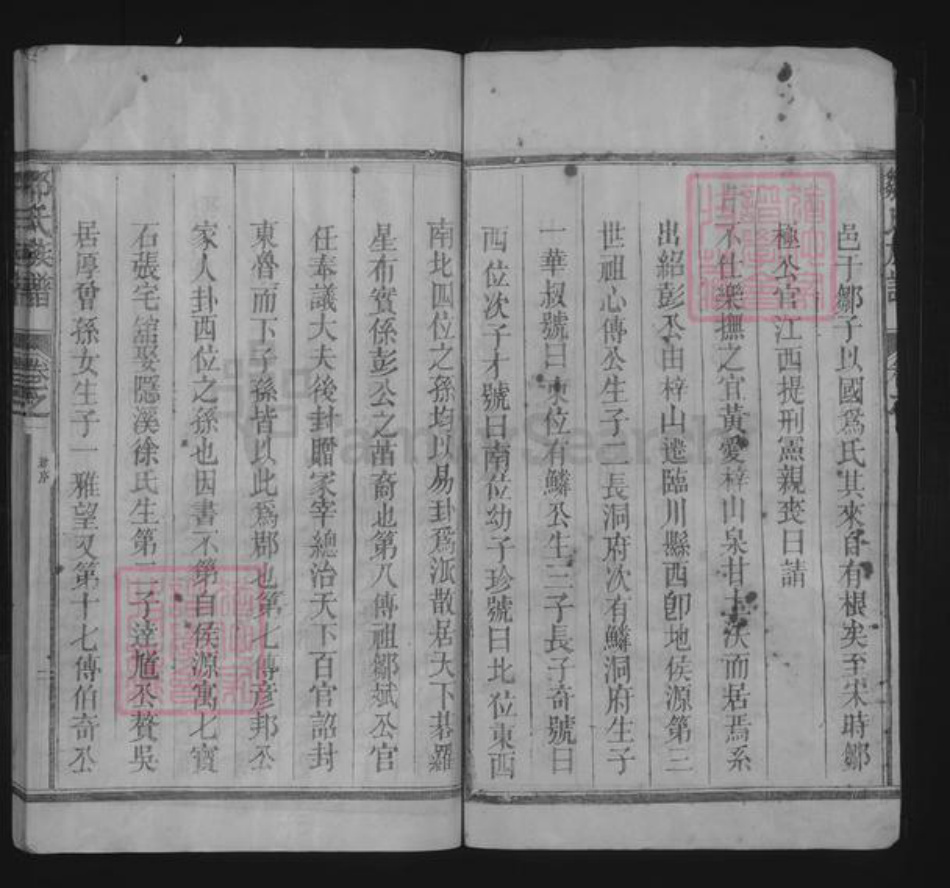 邑于鄒子以國爲氏其來自有根矣至宋時鄒
極公官江西提刑憲親喪日請
不仕樂撫之宜黃愛梓山泉甘土次而居焉系
出紹彭公由梓山遷臨川縣西卽地侯源第三
世祖心傳公生子二長洞府次有鱗洞府生子
一華叔號曰東位有鱗公生三子長子奇號曰
西位次子才號曰南位幼子珍號曰北位東西
南北四位之孫均以易卦爲派散居天下碁羅
星布實係彭公之苗裔也第八傳祖鄒斌公官
任奉議大夫後封贈冢宰總治天下百官詔封
東魯而下子孫皆以此爲郡也第七傳彦邦公
家人卦西位之孫也因書不第自侯源寓七寶
石張宅舘娶隱溪徐氏生第二子達尶公贅吳
居厚曾孫女生子一雅望又第十七傳伯奇公
鄒氏族譜
卷之